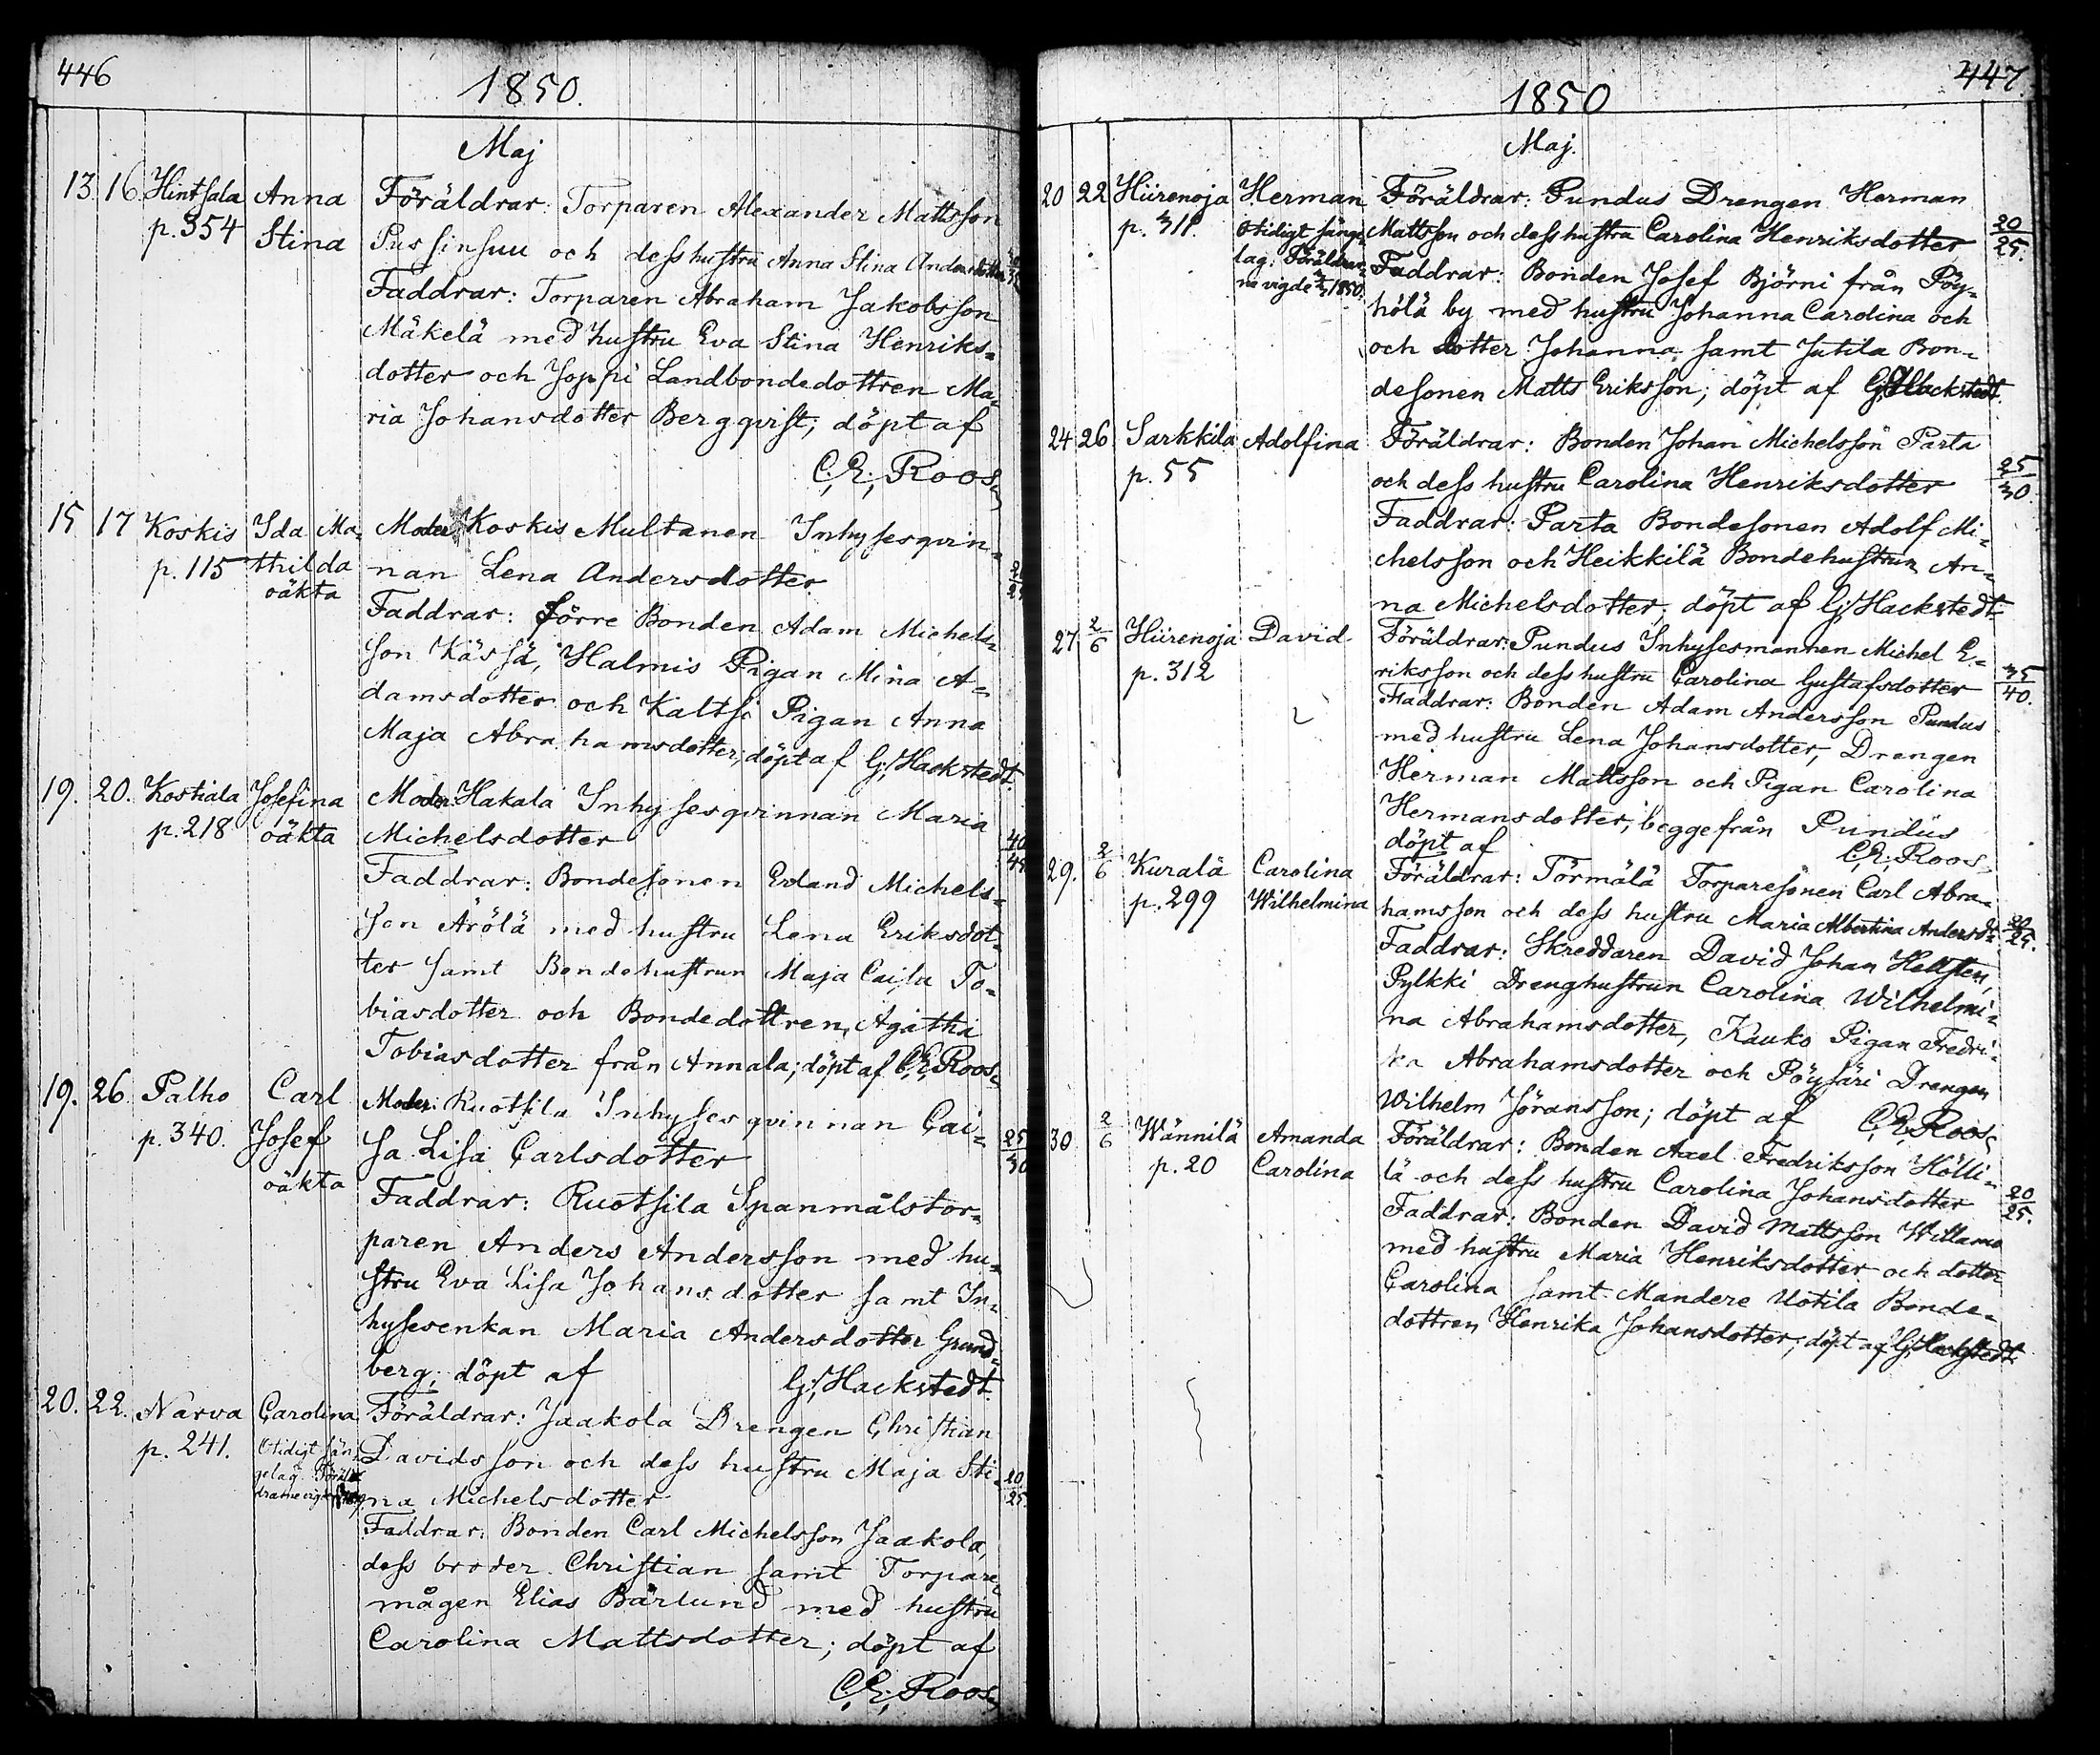 446
1850.
Maj
13 16 Hintsala Anna Föräldrar: Torparen Alexander Mattsson
p. 354 Stina Pussinsuu och dess hustru Anna Stina Andersdotter
Faddrar: Torparen Abraham Jakobsson
Mäkelä med hustru Eva Stina Henriks=
dotter och Joppi Landbondedottren Ma=
ria Johansdotter Bergqvist; döpt af
C: E: Roos
15 17 Koskis Ida Ma= Moder: Koskis Multanen Inhysesqvin=
p. 115 thilda nan Lena Andersdotter
oäkta
Faddrar: Förre Bonden Adam Michels=
son Kässä, Halmis Pigan Mina A=
damsdotter och Kaltsi Pigan Anna
Maja Abrahamsdotter; döpt af G: Hackstedt.
19. 20. Kostiala Josefina Moder: Hakala Inhysesqvinnan Maria
p. 218 oäkta Michelsdotter 40
Faddrar: Bondesonen Erland Michels=
son Arölä med hustru Lena Eriksdot=
ter samt Bondehustrun Maja Caisa To=
biasdotter och Bondedottren Agatha
Tobiasdotter från Annala; döpt af C: E: Roos
19. 26. Palho Carl Moder: Ruotsila Inhysesqvinnan Cai=
p. 340. Josef sa Lisa Carlsdotter 25/30
oäkta
Faddrar: Ruotsila Spanmålstor=
paren Anders Andersson med hu=
stru Eva Lisa Johansdotter samt In=
hysesenkan Maria Andersdotter Grund=
berg; döpt af G: Hackstedt.
20. 22. Narva Carolina Föräldrar: Jaakola Drengen Christian
p. 241. Otidigt sän= Davidsson och dess hustru Maja Sti= 20/25.
gelag. Föräl=
na Michelsdotter
Faddrar: Bonden Carl Michelsson Jaakola,
dess broder Christian samt Torpare
mågen Elias Bärlund med hustru
Carolina Mattsdotter; döpt af
C: E: Roos
447.
1850
Maj.
20 22 Hiirenoja Herman Föräldrar: Pundus Drengen Herman
p. 311. Otidigt sänge= Mattsson och dess hustru Carolina Henriksdotter 20/25.
lag. Föräldrar= Faddrar: Bonden Josef Björni från Pöy=
na vigde 1850. hölä by med hustru Johanna Carolina och
och dotter Johanna samt Jutila Bon=
desonen Matts Eriksson; döpt af G: Hackstedt.
24 26. Sarkkila Adolfina Föräldrar: Bonden Johan Michelsson Parta
p. 55 och dess hustru Carolina Henriksdotter 25/30.
Faddrar: Parta Bondesonen Adolf Mi=
chelsson och Heikkilä Bondehustrun An=
na Michelsdotter; döpt af G: Hackstedt.
27 2/6 Hiirenoja David Föräldrar: Pundus Inhysesmannen Michel E=
p. 312 riksson och dess hustru Carolina Gustafsdotter 35/40.
Faddrar: Bonden Adam Andersson Pundus
med hustru Lena Johansdotter, Drengen
Herman Mattsson och Pigan Carolina
Hermansdotter, begge från Pundus
döpt af C: E: Roos
29. 2/6 Kuralä Carolina Föräldrar: Törmälä Torparesonen Carl Abra=
p. 299 Wilhelmina hamsson och dess hustru Maria Albertina Andersd: 20/25.
Faddrar: Skreddaren David Johan Hellsten,
Pylkki Drenghustrun Carolina Wilhelmi=
na Abrahamsdotter, Kauko Pigan Fredri=
ka Abrahamsdotter och Pöysäri Drengen
Wilhelm Jöransson; döpt af C: E: Roos
30 2/6 Wännilä Amanda Föräldrar: Bonden Axel Fredriksson Hölli=
p. 20 Carolina lä och dess hustru Carolina Johansdotter 20/25.
Faddrar: Bonden David Mattsson Willamo
med hustru Maria Henriksdotter och dotter
Carolina samt Mandere Uotila Bonde=
dottren Henrika Johansdotter; döpt af G: Hackstedt.